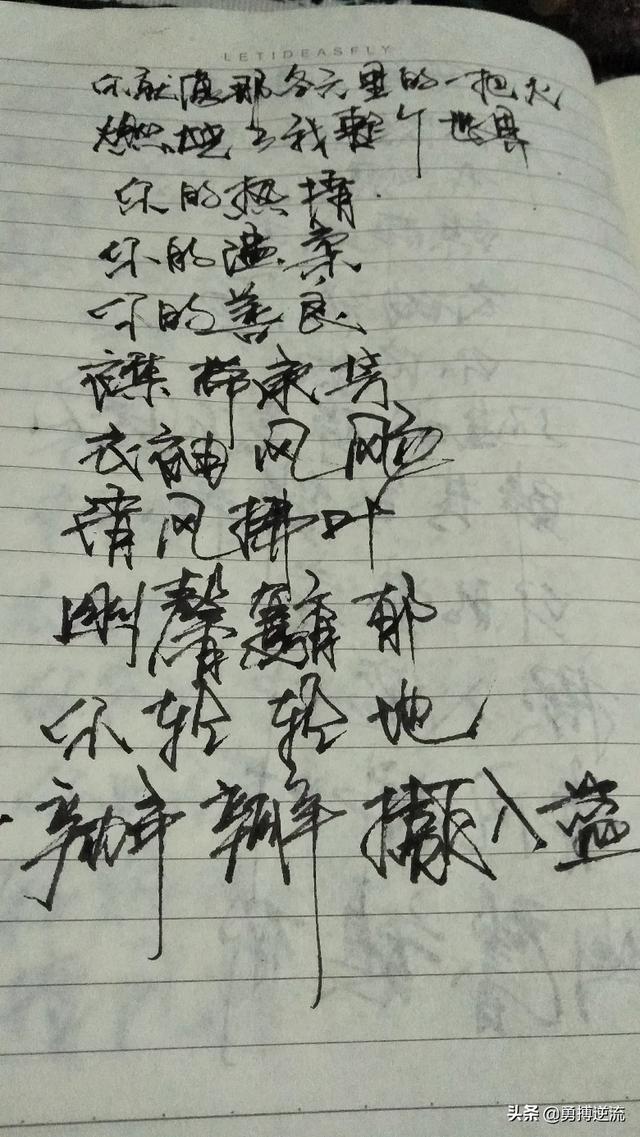 LETIDEASFLY
你就像那冬天里的一把火
燃烧了我整个世界
你的热情
你的温柔
你的善良
裙带
衣袖风
清风拂叶
馨郁
你轻轻地
瓣瓣撷入
头条 @勇搏逆流